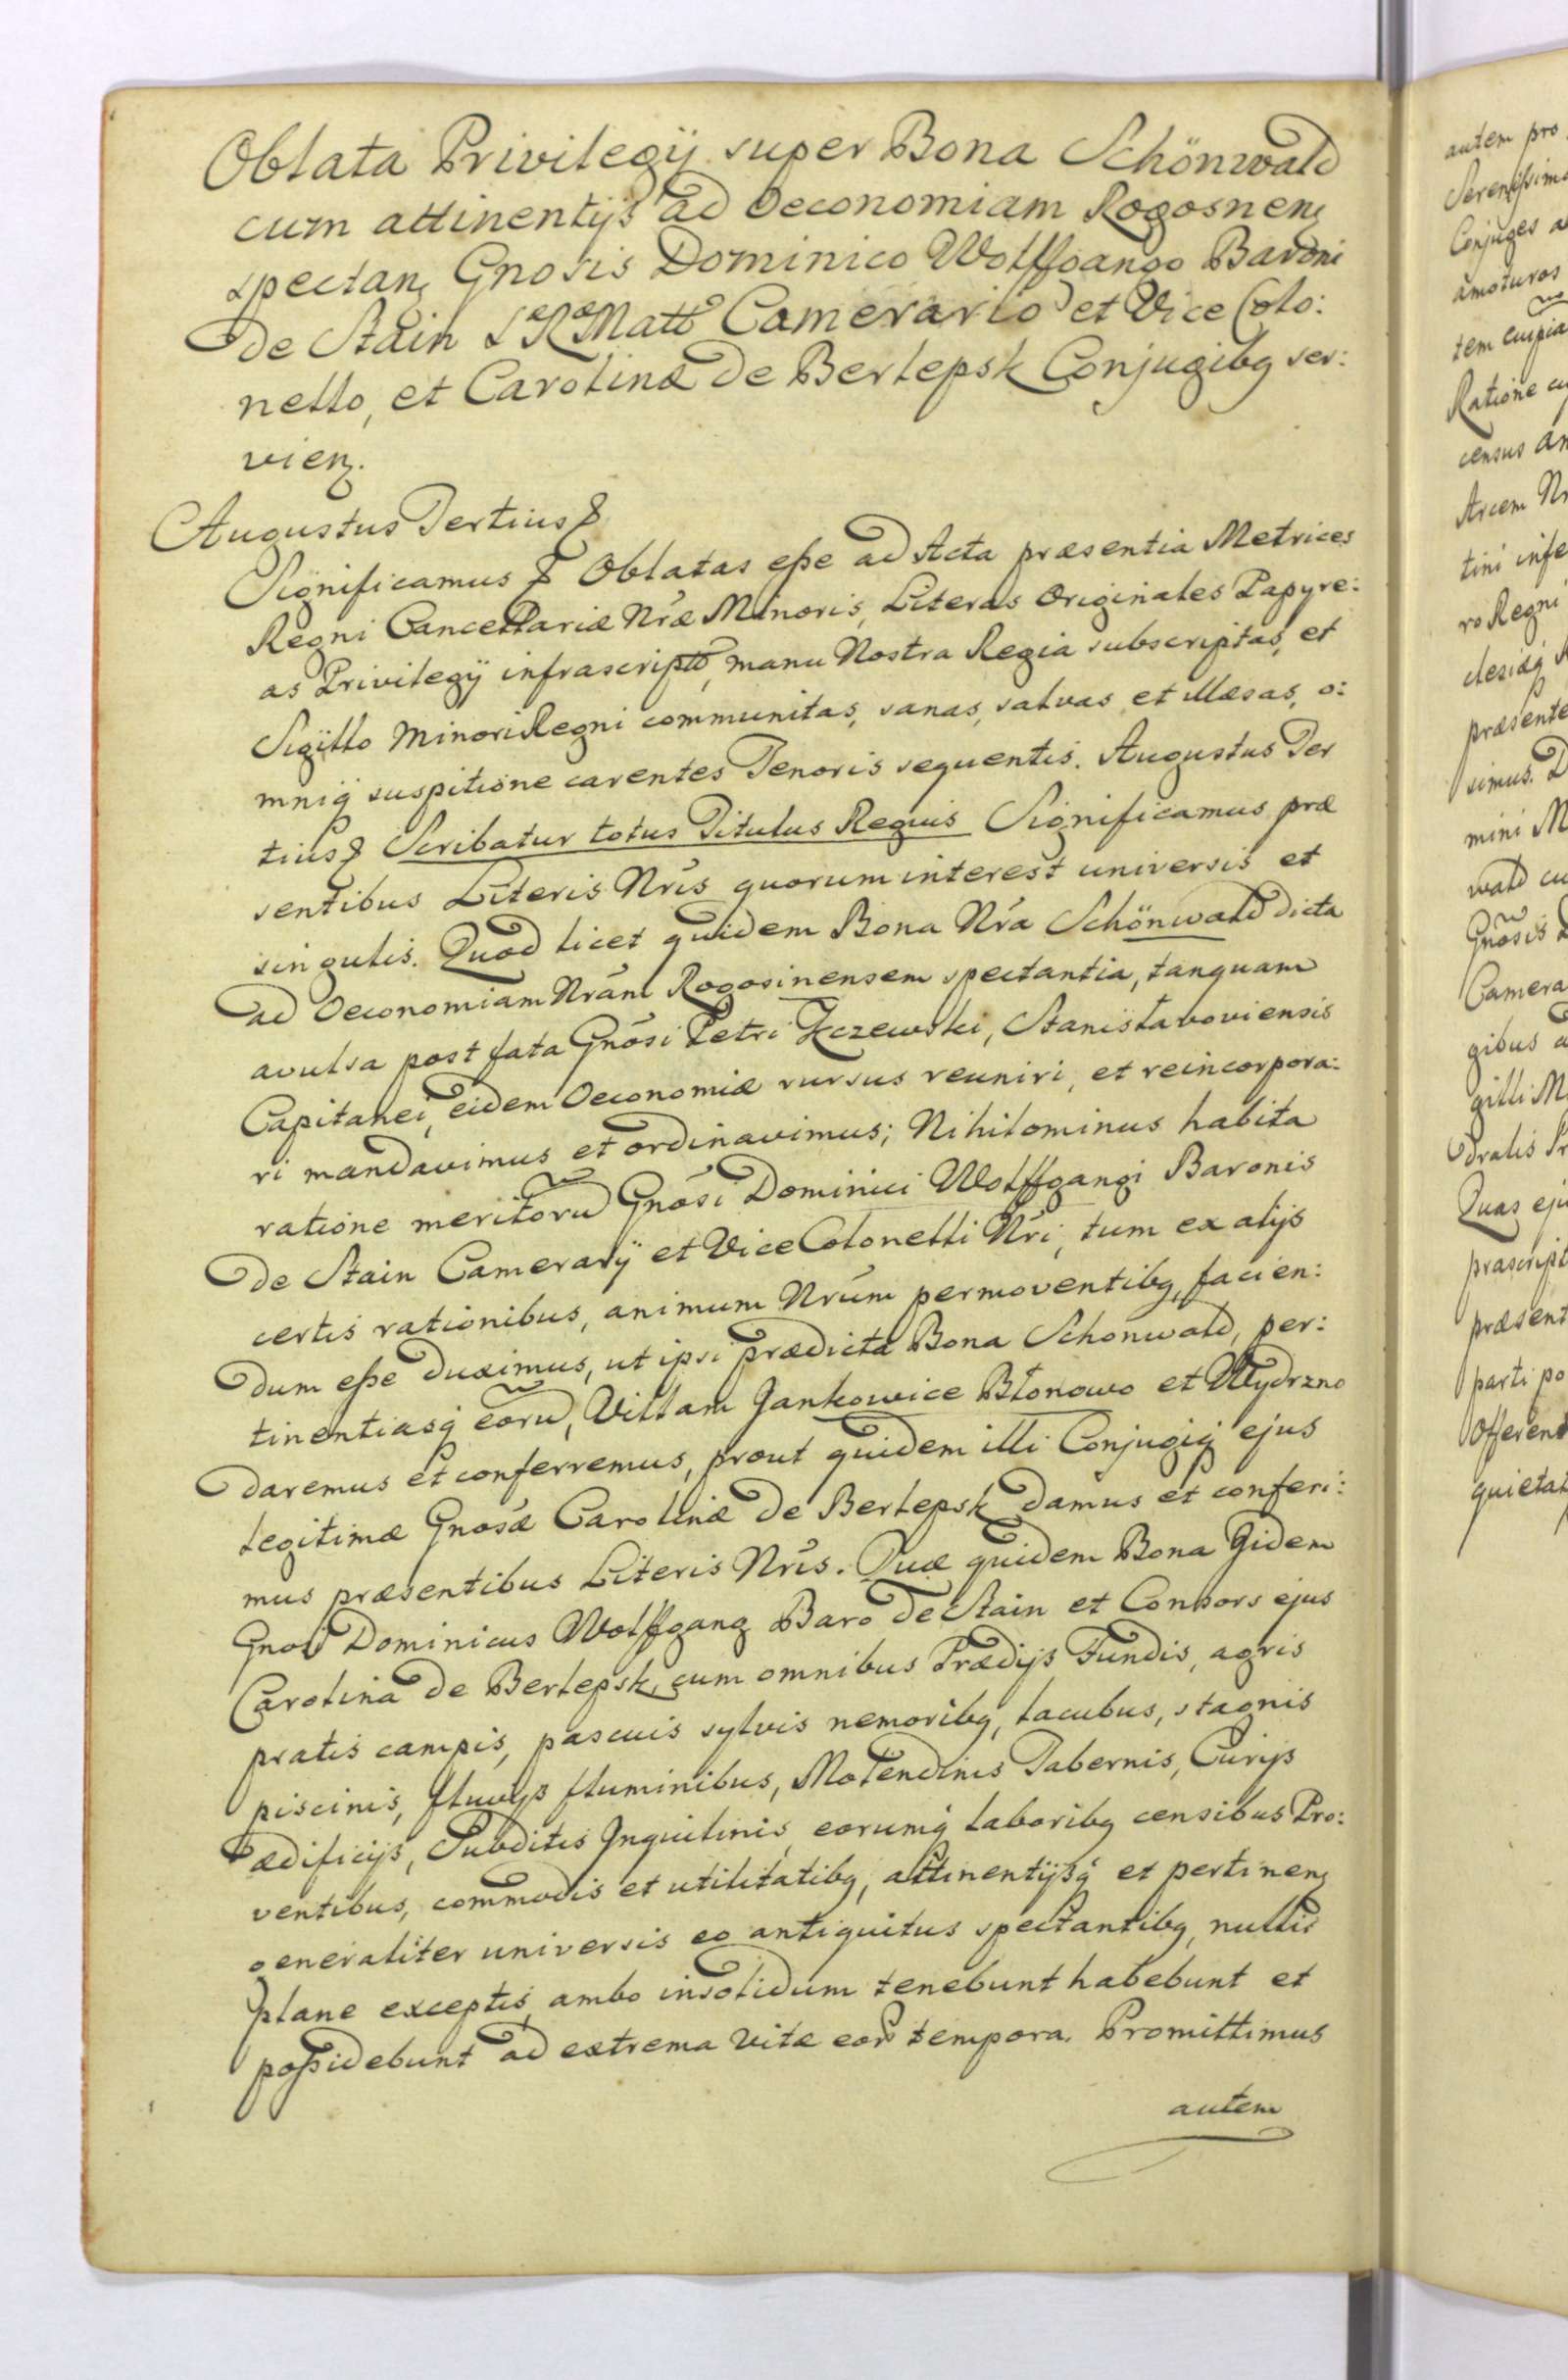 Oblata Privilegÿ super Bona Schönwald
cum attinentÿs ad Oeconomiam Rogosnenʒ
spectanʒ Gnosis Dominico Wolffgango Baroni
de Stain SæRæMatt Camerario et Vice Colo:
nello, et Carolinæ de Berlepsk Conjugibq ser:
vienʒ.
Augustus Tertius &
Significamus & Oblatas eße ad Acta præsentia Metrices
Regni Cancellariæ Nræ Minoris, Literas Originales Papyre:
as Privilegÿ infrascriptt, manu Nostra Regia subscriptas, et
Sigillo Minori Regni communitas, sanas, salvas et illæsas, o:
mniq suspitione carentes Tenoris sequentis. Augustus Ter
tius & Scribatur totus Titulus Regius Significamus præ
sentibus Literis Nris quorum interest universis et
singulis. Quod licet quidem Bona Nra Schönwald dicta
ad Oeconomiam Nram Rogosinensem spectantia, tanquam
avulsa post fata Gnosi Petri Jczewski, Stanislavoviensis
Capitanei, eidem Oeconomiæ rursus reuniri, et reincorpora:
ri mandavimus et ordinavimus; Nihilominus habita
ratione meritorũ Gnosi Dominici Wolffgangi Baronis
de Stain Camerarÿ et Vice Colonelli Nri, tum ex alÿs
certis rationibus, animum Nrum permoventibq, facien:
dum eße duximus, ut ipsi prædicta Bona Schonwald, per:
tinentiasq eorũ, Villam Jankowice Błonowo et Wydrzno
daremus et conferremus, prout quidem illi Conjugiq ejus
legitimæ Gnosæ Carolinæ de Berlepsk damus et conferi:
mus præsentibus Literis Nris. Quæ quidem Bona Jidem
Gnosi Dominicus Wolffgang Baro de Stain et Consors ejus
Carolina de Berlepsk, cum omnibus Prædÿs Fundis, agris
pratis campis, pascuis sylvis nemoribq, lacubus, stagnis
piscinis, fluvÿs fluminibus, Molendinis Tabernis, Curÿs
ædificÿs, Subditis Inquilinis, eorumq laboribq censibus Pro:
ventibus, commodis et utilitatibq, attinentÿsq et pertinenʒ
generaliter universis eo antiquitus spectantibq, nullis
plane exceptis ambo insolidum tenebunt habebunt et
poßidebunt ad extrema vitæ eorũ tempora. Promittimus
autem
autem pro
Conjuges a
amoturos
Ratione cu
census an
Arcem Nr
tini infe
ro Regni
præsente
simus. D
mini M
wald cu
Gnosis D
Camera
gibus a
gilli M
Quas eju
præscript
præsent
parti po
Offerent
quietat